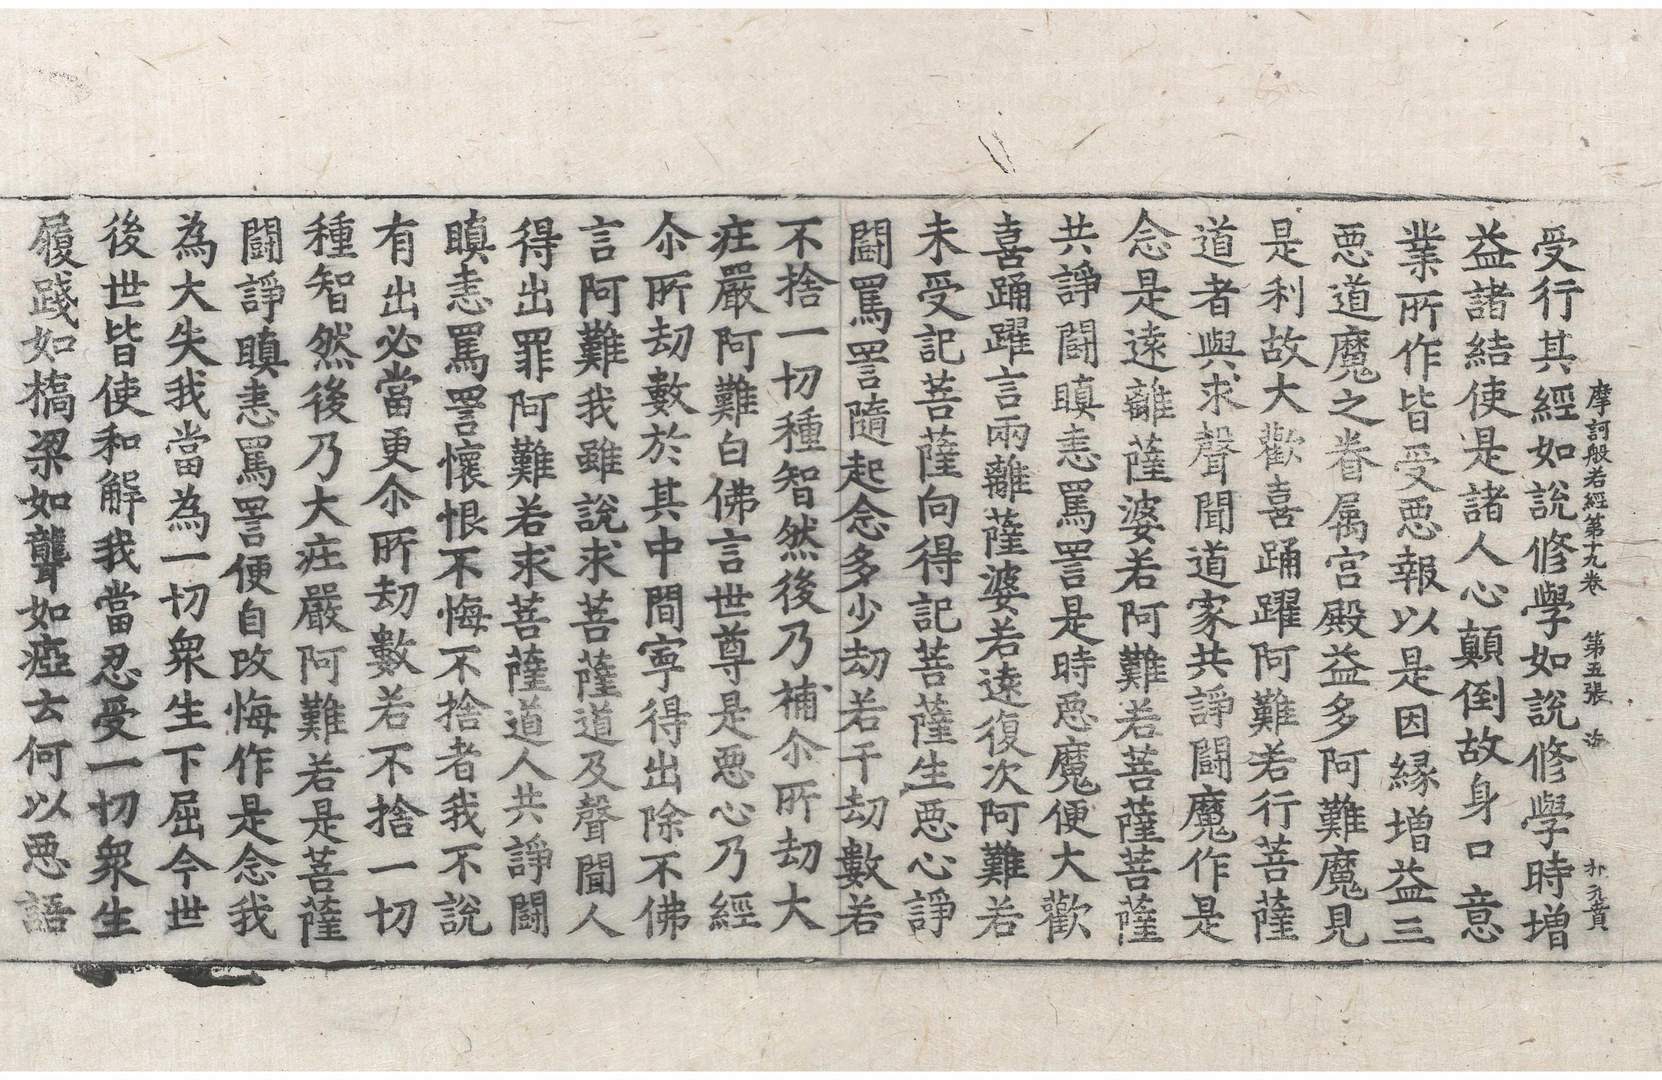 摩訶般若經第十九卷　第五張　海　朴元賁
受行其經如說修學如說修學時增
益諸結使是諸人心顛倒故身口意
業所作皆受惡報以是因緣增益三
惡道魔之眷属宫殿益多阿難魔見
是利故大歡喜踊躍阿難若行菩薩
道者與求聲聞道家共諍闘魔作是
念是遠離薩婆若阿難若菩薩菩薩
共諍闘瞋恚罵詈是時惡魔便大歡
喜踊躍言兩離薩婆若遠復次阿難若
未受記菩薩向得記菩薩生惡心諍
闘罵詈隨起念多少劫若干劫數若
不捨一切種智然後乃補尒所劫大
庄嚴阿難白佛言世尊是惡心乃經
尒所劫數於其中間寧得出除不佛
言阿難我雖說求菩薩道及聲聞人
得出罪阿難若求菩薩道人共諍闘
瞋恚罵詈懷恨不悔不捨者我不說
有出必當更尒所劫數若不捨一切
種智然後乃大庄嚴阿難若是菩薩
闘諍瞋恚罵詈便自改悔作是念我
為大失我當為一切衆生下屈今世
後世皆使和解我當忍受一切衆生
履踐如橋梁如聾如瘂云何以惡語